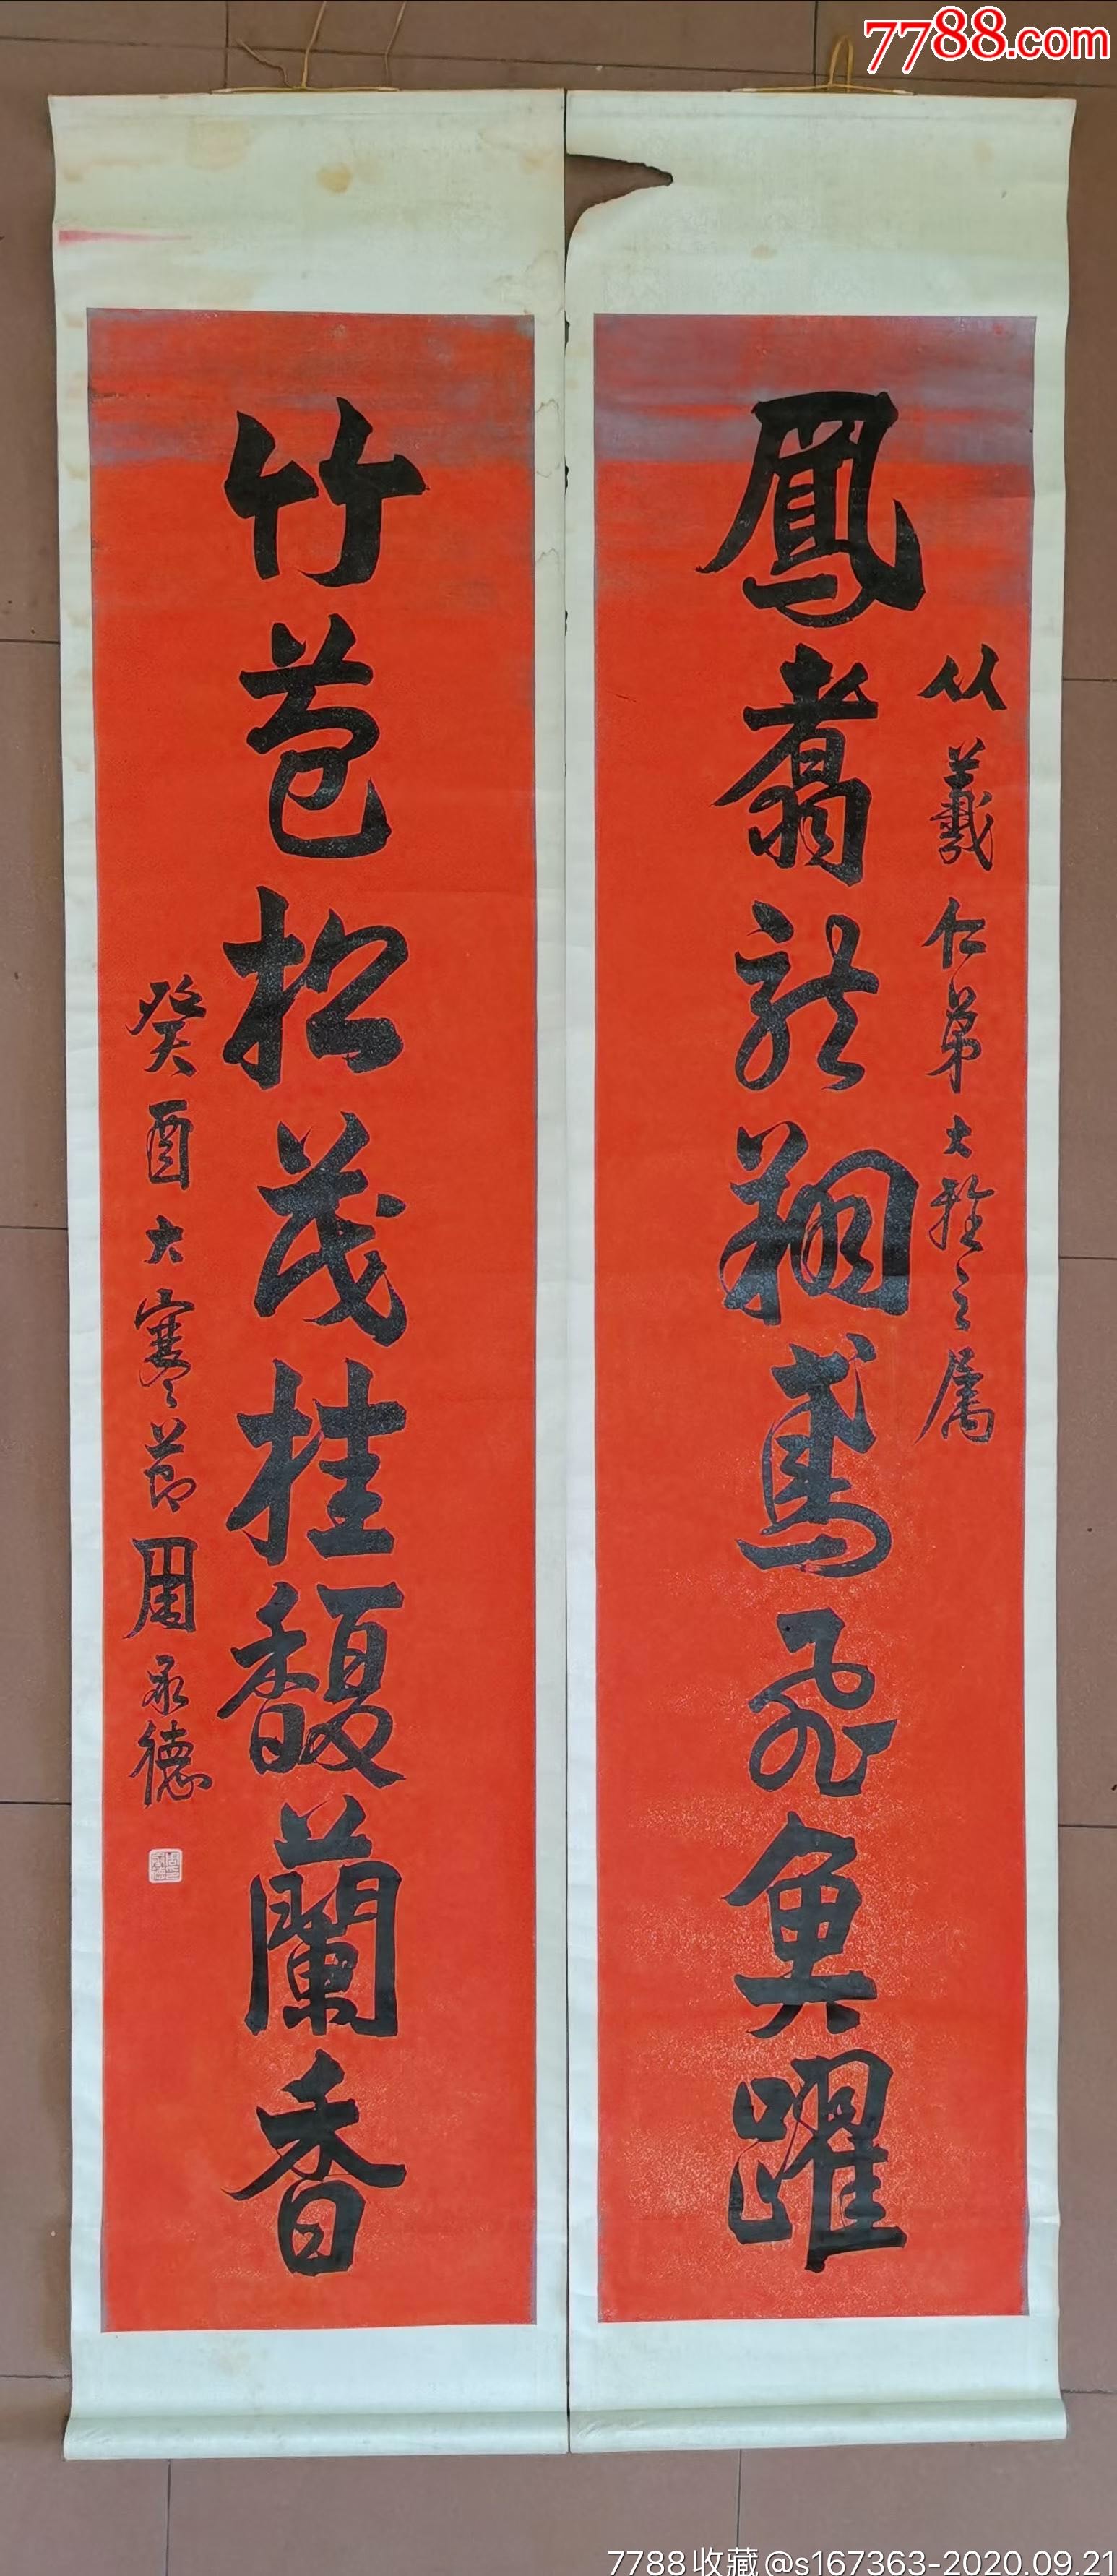 7788.com
从羲仁弟大雅之属
鳳翥龍翔鳶飛魚躍
竹苞松茂桂馥蘭香
癸酉大寒節周承德
7788收藏@s167363-2020.09.21